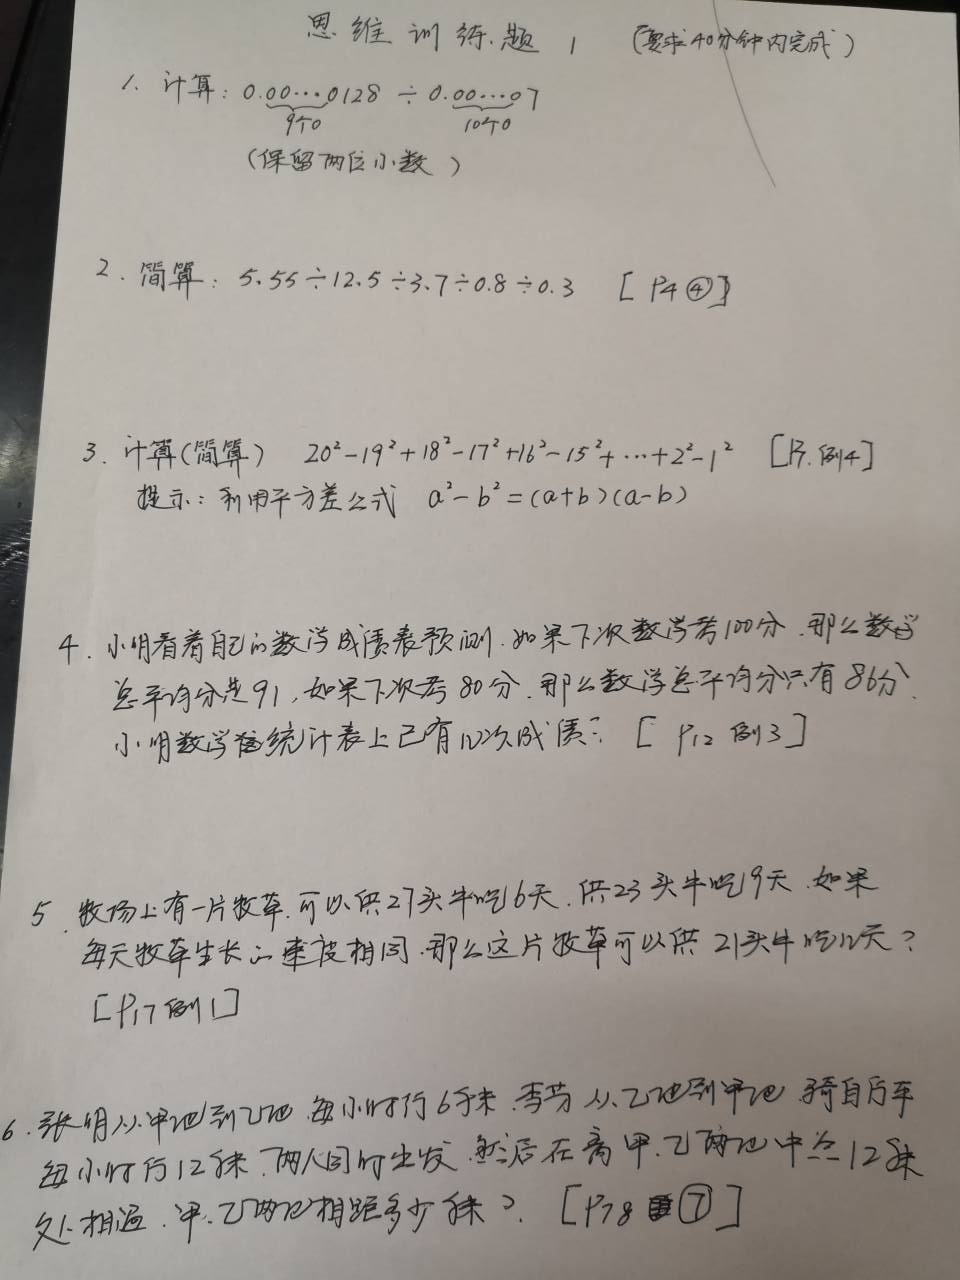 思维训练题 1 (要求40分钟内完成)
1. 计算: 0.00...0128 ÷ 0.00...07
9个0 10个0
(保留两位小数)
2. 简算: 5.55÷12.5÷3.7÷0.8÷0.3 [P4④]
3. 计算(简算) 20²-19²+18²-17²+16²-15²+...+2²-1² [P7.例4]
提示: 利用平方差公式 a²-b²=(a+b)(a-b)
4. 小明看着自己的数学成绩表预测.如果下次数学考100分.那么数学
总平均分是91,如果下次考80分.那么数学总平均分只有86分.
小明数学统计表上已有几次成绩? [P12 例3]
5. 牧场上有一片牧草.可以供27头牛吃6天.供23头牛吃9天.如果
每天牧草生长的速度相同.那么这片牧草可以供21头牛吃几天?
[P17例1]
6. 张明从甲地到乙地.每小时行6千米.李芳从乙地到甲地.骑自行车
每小时行12千米.两人同时出发.然后在离甲.乙两地中点12千米
处相遇.甲.乙两地相距多少千米? [P78 ⑦]